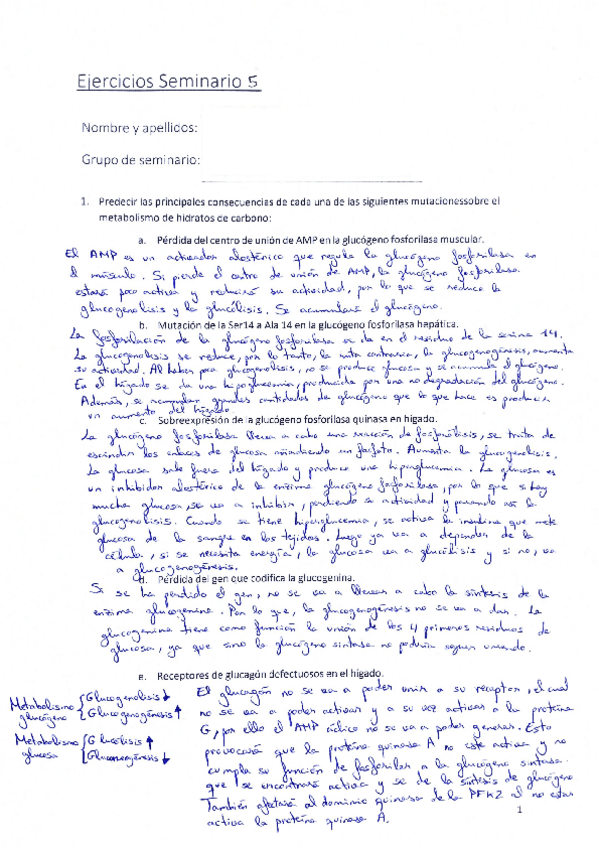 Ejercicios Seminario 5
Nombre y apellidos:
Grupo de seminario:
1. Predecir las principales consecuencias de cada una de las siguientes mutacionessobre el
metabolismo de hidratos de carbono:
a. Pérdida del centro de unión de AMP en la glucógeno fosforilasa muscular.
El AMP es un activador alostérico que regula la glucógeno fosforilasa en
el músculo. Si pierde el centro de unión de AMP, la glucógeno fosforilasa
estará poco activa y reducirá su actividad, por lo que se reduce la
glucogenolisis y la glucólisis. Se acumulará el glucógeno.
b. Mutación de la Ser14 a Ala 14 en la glucógeno fosforilasa hepática.
La fosforilación de la glucógeno fosforilasa se da en el residuo de la serina 14.
La glucogenolisis se reduce, por lo tanto, la ruta contraria, la glucogenogénesis, aumenta
su actividad. Al haber poca glucogenolisis, no se produce glucosa y se acumula el glucógeno.
En el hígado se da una hipoglucemia, producida por una no degradación del glucógeno.
Además, se acumulan grandes cantidades de glucógeno que lo que hace es producir
un aumento del hígado.
c. Sobreexpresión de la glucógeno fosforilasa quinasa en hígado.
La glucógeno fosforilasa lleva a cabo una reacción de fosforólisis, se trata de
escindir los enlaces de glucosa añadiendo un fosfato. Aumenta la glucogenolisis.
La glucosa sale fuera del hígado y produce una hiperglucemia. La glucosa es
un inhibidor alostérico de la enzima glucógeno fosforilasa, por lo que si hay
mucha glucosa se va a inhibir, perdiendo su actividad y parando así la
glucogenolisis. Cuando se tiene hiperglucemia, se activa la insulina que mete
glucosa de la sangre en los tejidos. Luego ya va a depender de la
célula, si se necesita energía, la glucosa va a glucólisis y si no, va
a glucogenogénesis.
d. Pérdida del gen que codifica la glucogenina.
Si se ha perdido el gen, no se va a llevar a cabo la síntesis de la
enzima glucogenina. Por lo que, la glucogenogénesis no se va a dar. La
glucogenina tiene como función la unión de los 4 primeros residuos de
glucosa, ya que sino la glucógeno sintasa no podría seguir uniendo.
e. Receptores de glucagón defectuosos en el hígado.
Metabolismo glucógeno { Glucogenolisis ↓
Glucogenogénesis ↑
Metabolismo glucosa { Glucólisis ↑
Gluconeogénesis ↓
El glucagón no se va a poder unir a su receptor, el cual
no se va a poder activar y a su vez activar a la proteína
G, por ello el AMP cíclico no se va a poder generar. Esto
provocará que la proteína quinasa A no esté activa y no
cumpla su función de fosforilar a la glucógeno sintasa
que se encontrará activa y se da la síntesis de glucógeno
También afectará al dominio quinasa de la PFK2 al no estar
activa la proteína quinasa A.
1